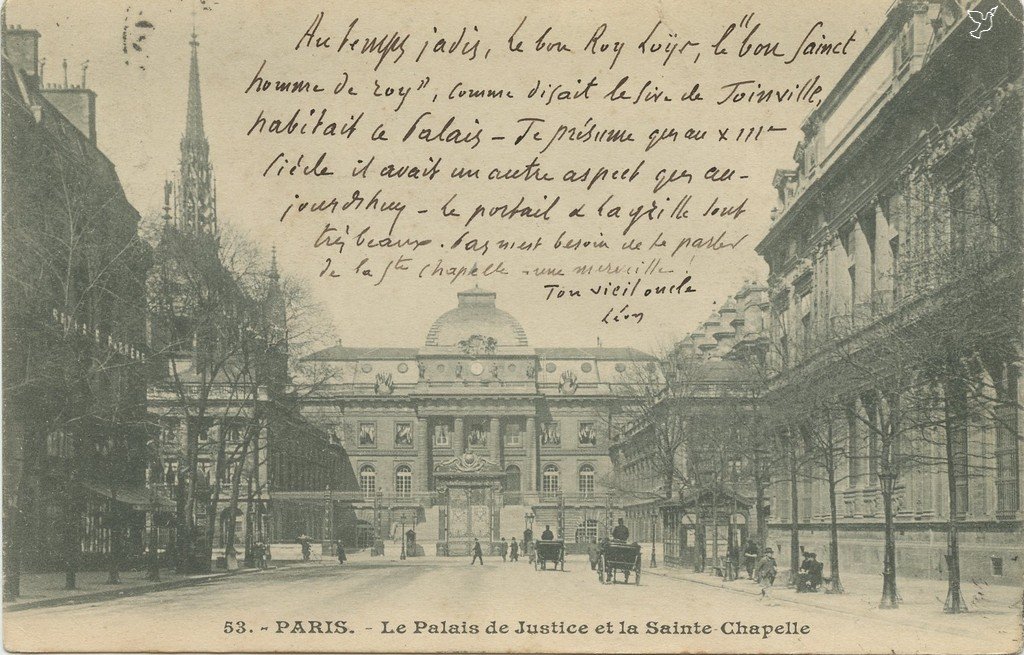 Au temps jadis, le bon Roy Loÿs, le "bon sainct
homme de roy", comme disait le sire de Joinville,
habitait ce Palais - Je présume qu'au XIIIe
siècle il avait un autre aspect qu'au-
jourd'huy - le portail & la grille sont
très beaux. Pas n'est besoin de te parler
de la Ste Chapelle - une merveille !
Ton vieil oncle
Léon
53. - PARIS. - Le Palais de Justice et la Sainte-Chapelle